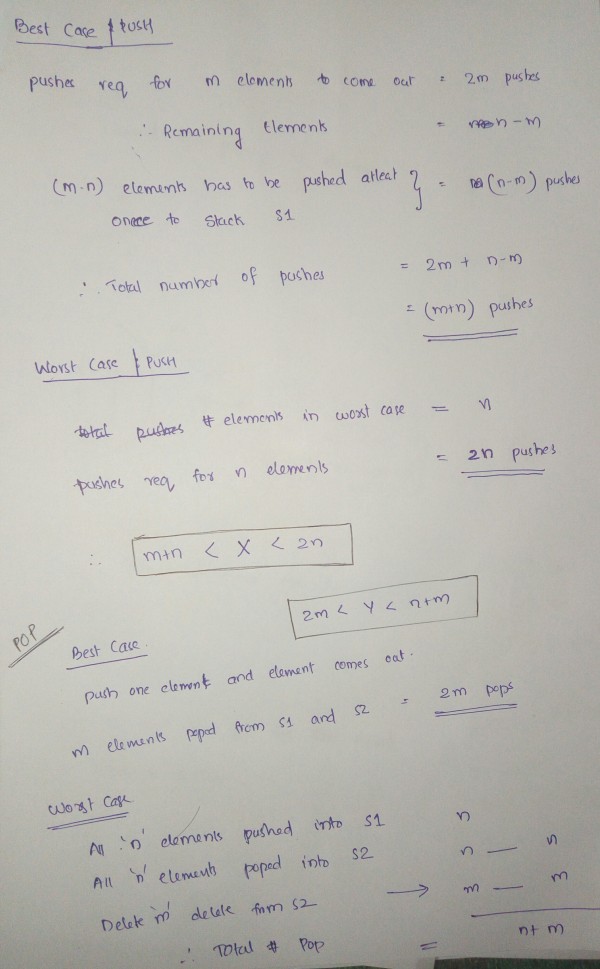 Best Case PUSH
pushes req for m elements to come out = 2m pushes
∴ Remaining Elements = n-m
(m-n) elements has to be pushed atleat onece to Stack S1 } = (n-m) pushes
∴ Total number of pushes = 2m + n-m
= (m+n) pushes
Worst Case PUSH
total pushes # elements in worst case = n
pushes req for n elements = 2n pushes
∴ m+n < X < 2n
2m < Y < n+m
POP
Best Case.
push one element and element comes out.
m elements poped from S1 and S2 = 2m pops
Worst Case
All 'n' elements pushed into S1 n
All 'n' elements poped into S2 n — n
Delete 'm' delete from S2 → m — m
∴ Total # Pop = n+m